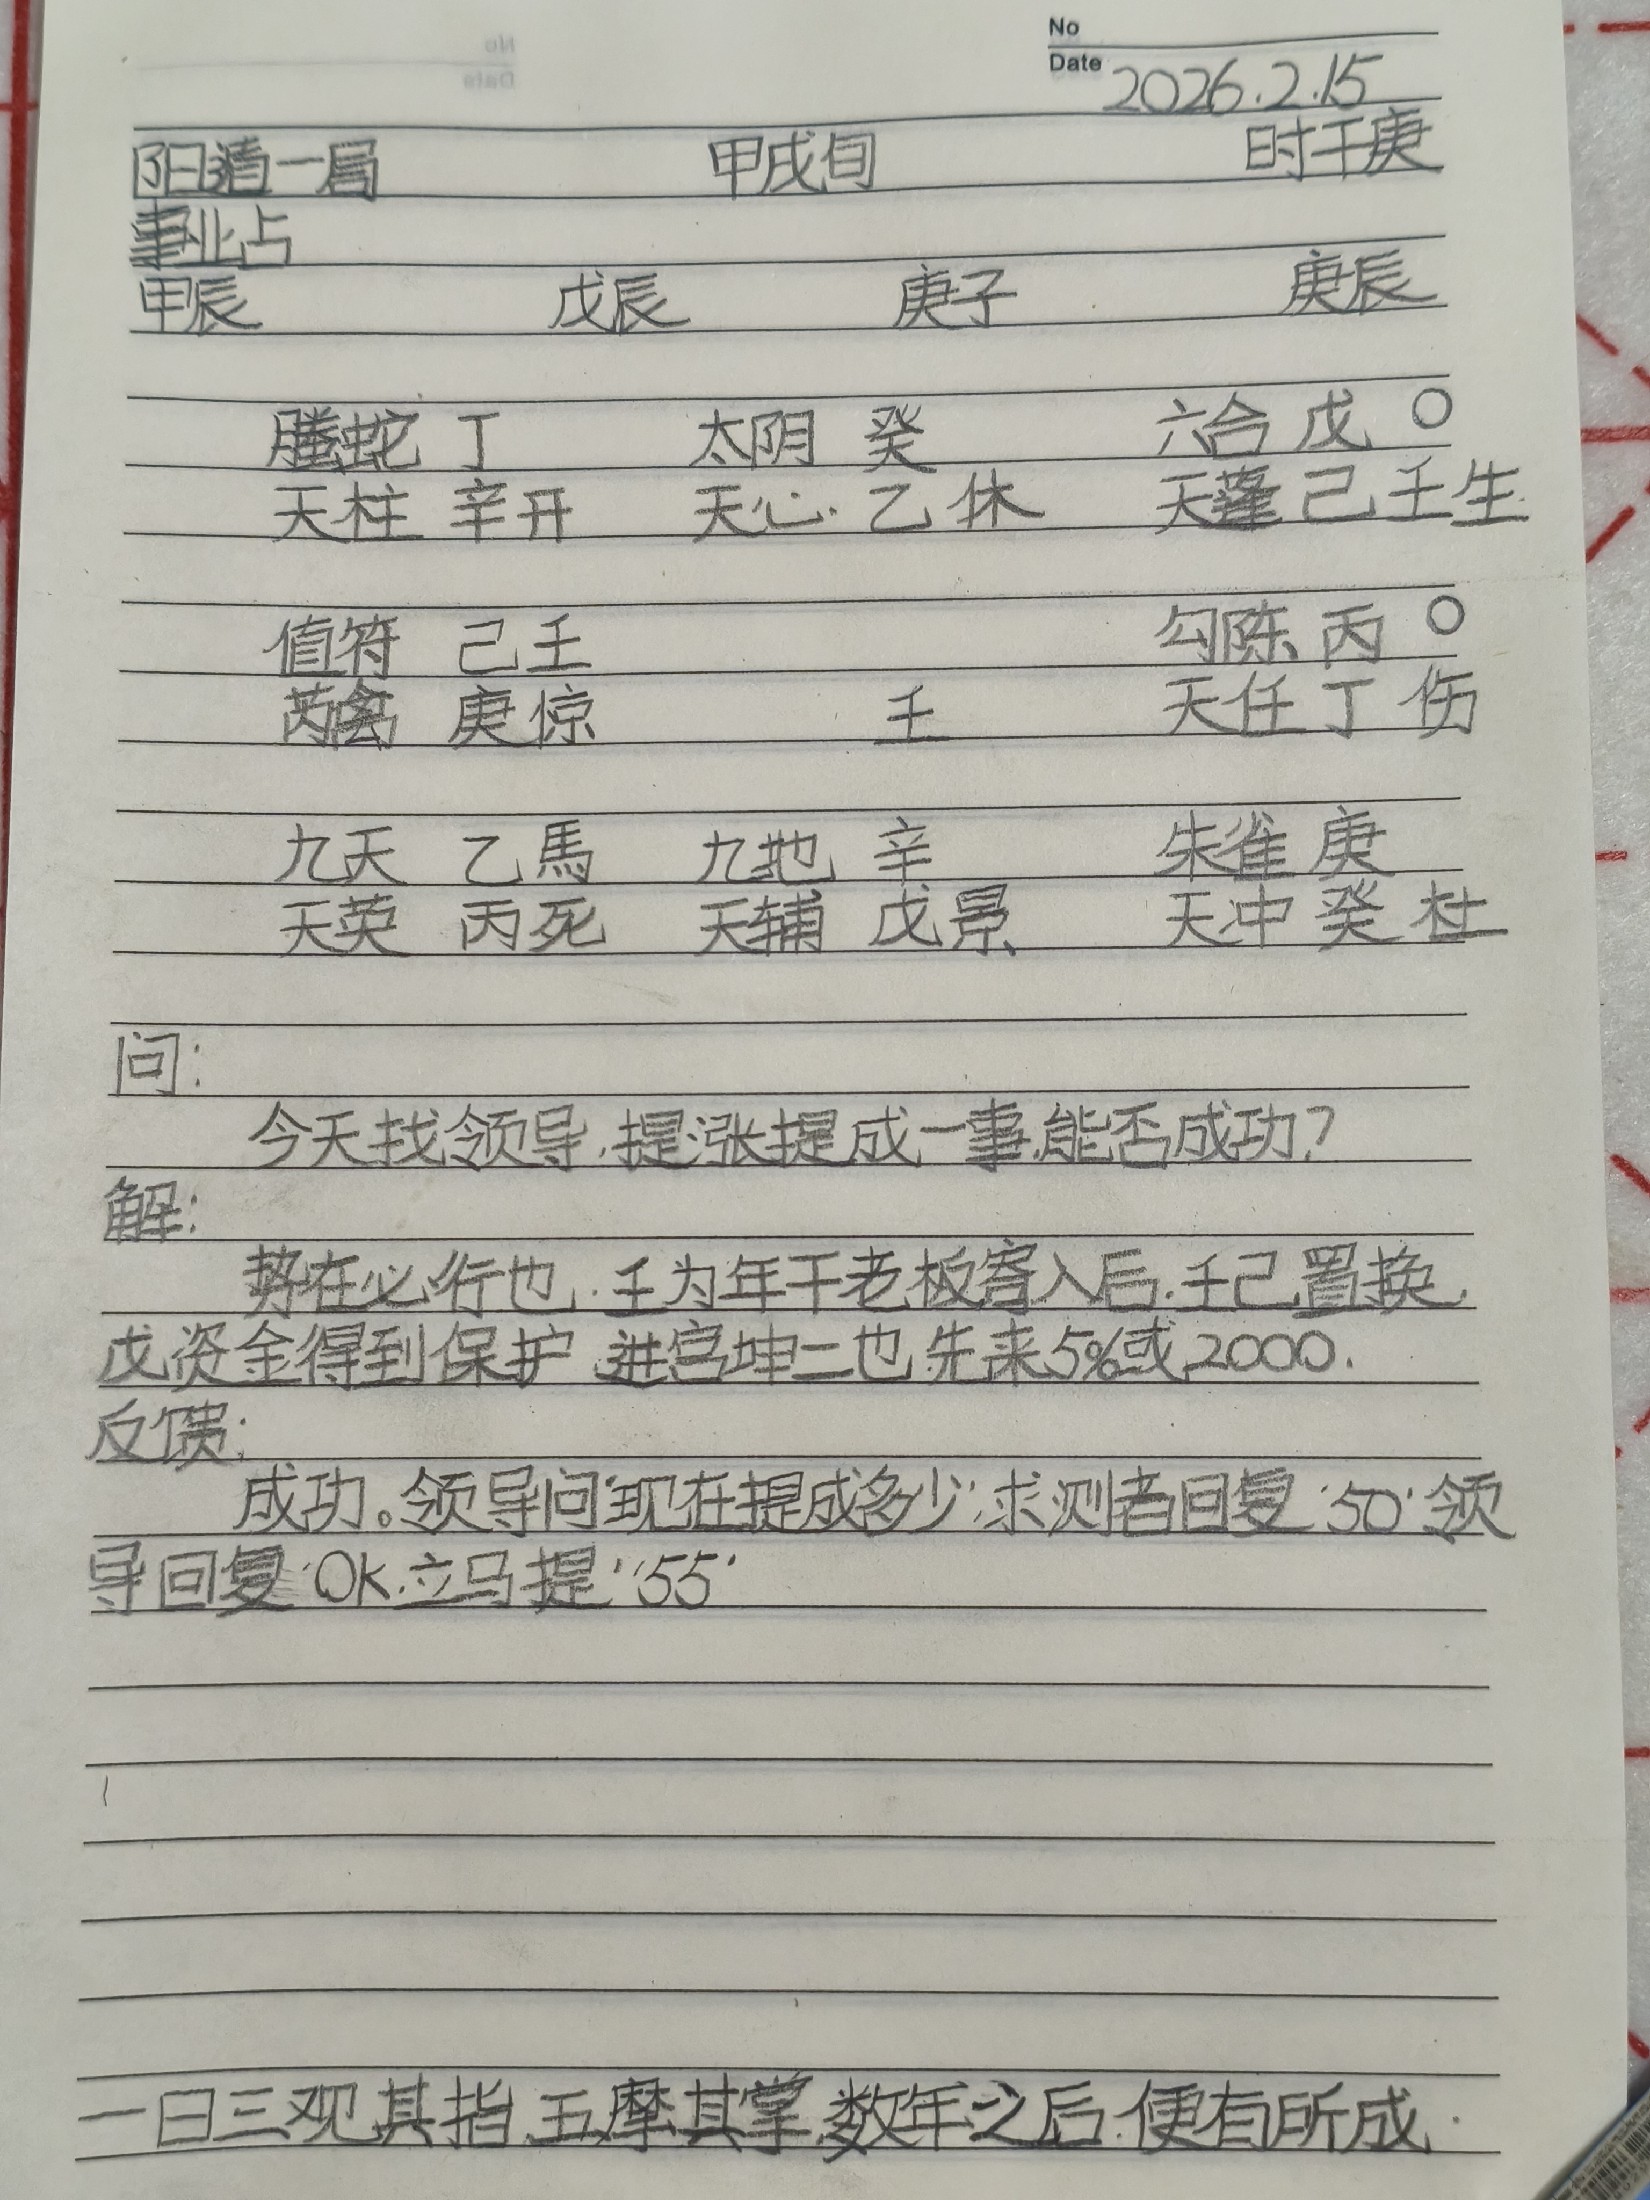 No
Date 2026.2.15
阳遁一局 甲戌旬 时干庚
事业占
甲辰 戊辰 庚子 庚辰
螣蛇 丁 太阴 癸 六合 戊 〇
天柱 辛开 天心 乙 休 天蓬 己壬生
值符 己壬 勾陈 丙 〇
芮禽 庚惊 壬 天任 丁 伤
九天 乙馬 九地 辛 朱雀 庚
天英 丙死 天辅 戊景 天冲 癸 杜
问:
今天找领导,提涨提成一事,能否成功?
解:
势在必行也.壬为年干老板寄入后.壬己置换,
戊资金得到保护,进宫坤二也,先来5%或2000.
反馈:
成功。领导问'现在提成多少',求测者回复'50'领
导回复'OK.立马提''55'
一日三观其指,五摩其掌,数年之后,便有所成.